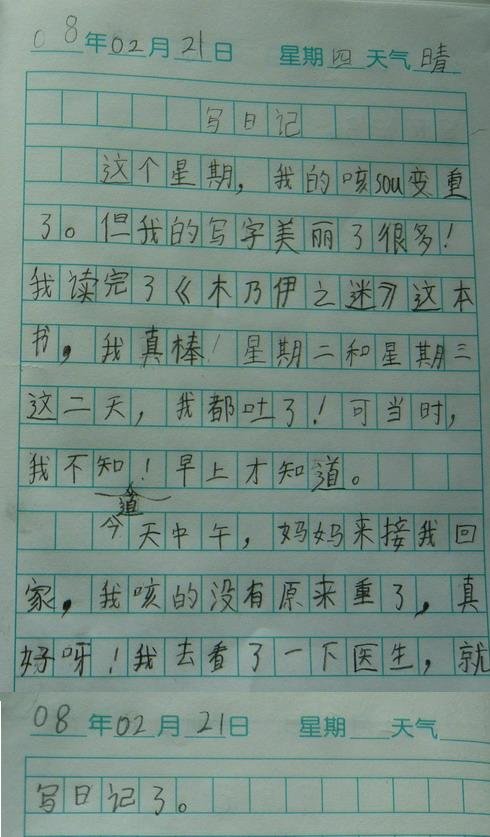 08年02月21日 星期四天气晴
写日记
这个星期，我的咳sou变重
了。但我的写字美丽了很多！
我读完了《木乃伊之迷》这本
书，我真棒！星期二和星期三
这二天，我都吐了！可当时，
我不知道！早上才知道。
今天中午，妈妈来接我回
家，我咳的没有原来重了，真
好呀！我去看了一下医生，就
08年02月21日 星期 天气
写日记了。